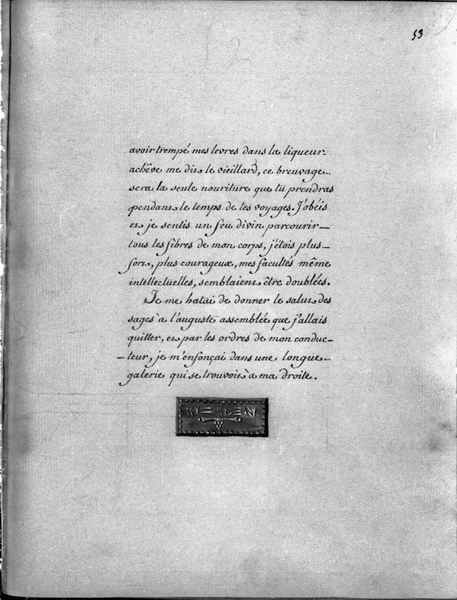 53
avoir trempé mes levres dans la liqueur.
achêve me dit le vieillard, ce breuvage
sera la seule nouriture que tu prendras
pendant le temps de tes voyages. J'obéis
et je sentis un feu divin parcourir
tous les fibres de mon corps, j'étois plus
fort, plus courageux, mes facultés même
intellectuelles, semblaient être doublées.
Je me hatai de donner le salut des
sages à l'auguste assemblée que j'allais
quitter, et par les ordres de mon conduc-
teur, je m'enfonçai dans une longue
galerie qui se trouvoit à ma droite.